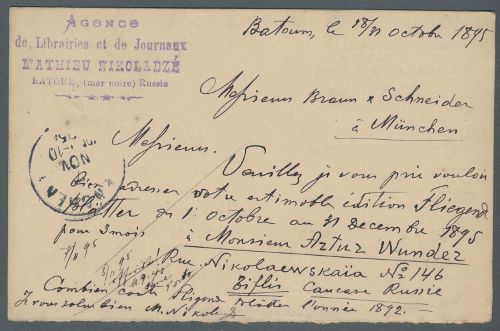 AGENCE
de Librairies et de Journaux
MATHIEU NIKOLADZÉ
BATOUM, (mer noire) Russie
Batoum, le 18/31 octobre 1895
Messieurs Braun & Schneider
à München
Messieurs.
Veuillez je vous prie vouloir
bien adresser votre estimable édition Fliegend
Blätter du 1. octobre au 31 Decembre 1895
pour 3 mois
à Monsieur Artur Wunder
Rue Nikolaewskaïa No 146
Tiflis Caucase Russie
Combien coute Fliegend Blätter l'année 1892.
M. Nikoladzé
NOV
95
5/11 95